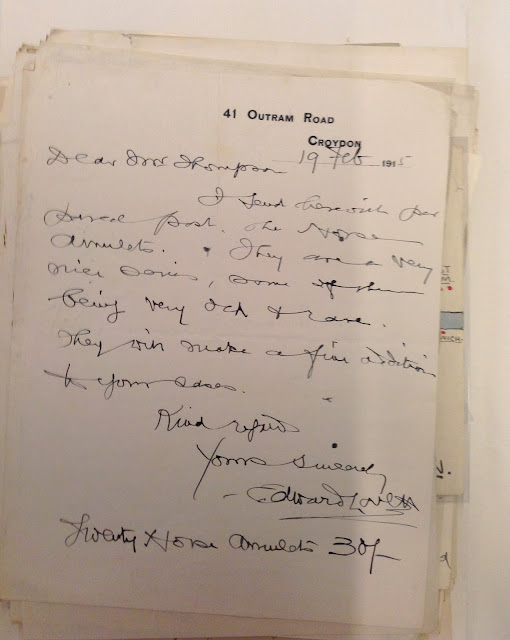 41 OUTRAM ROAD
CROYDON
19 Feb 1915
Dear Mr Thompson
I send herewith per
parcel post. the Horse
Amulets. They are a very
nice series, some of them
being very old & rare.
They will make a fine addition
to your cases.
Kind regards
Yours Sincerely
Edward Lovett
Twenty Horse Amulets 30/-